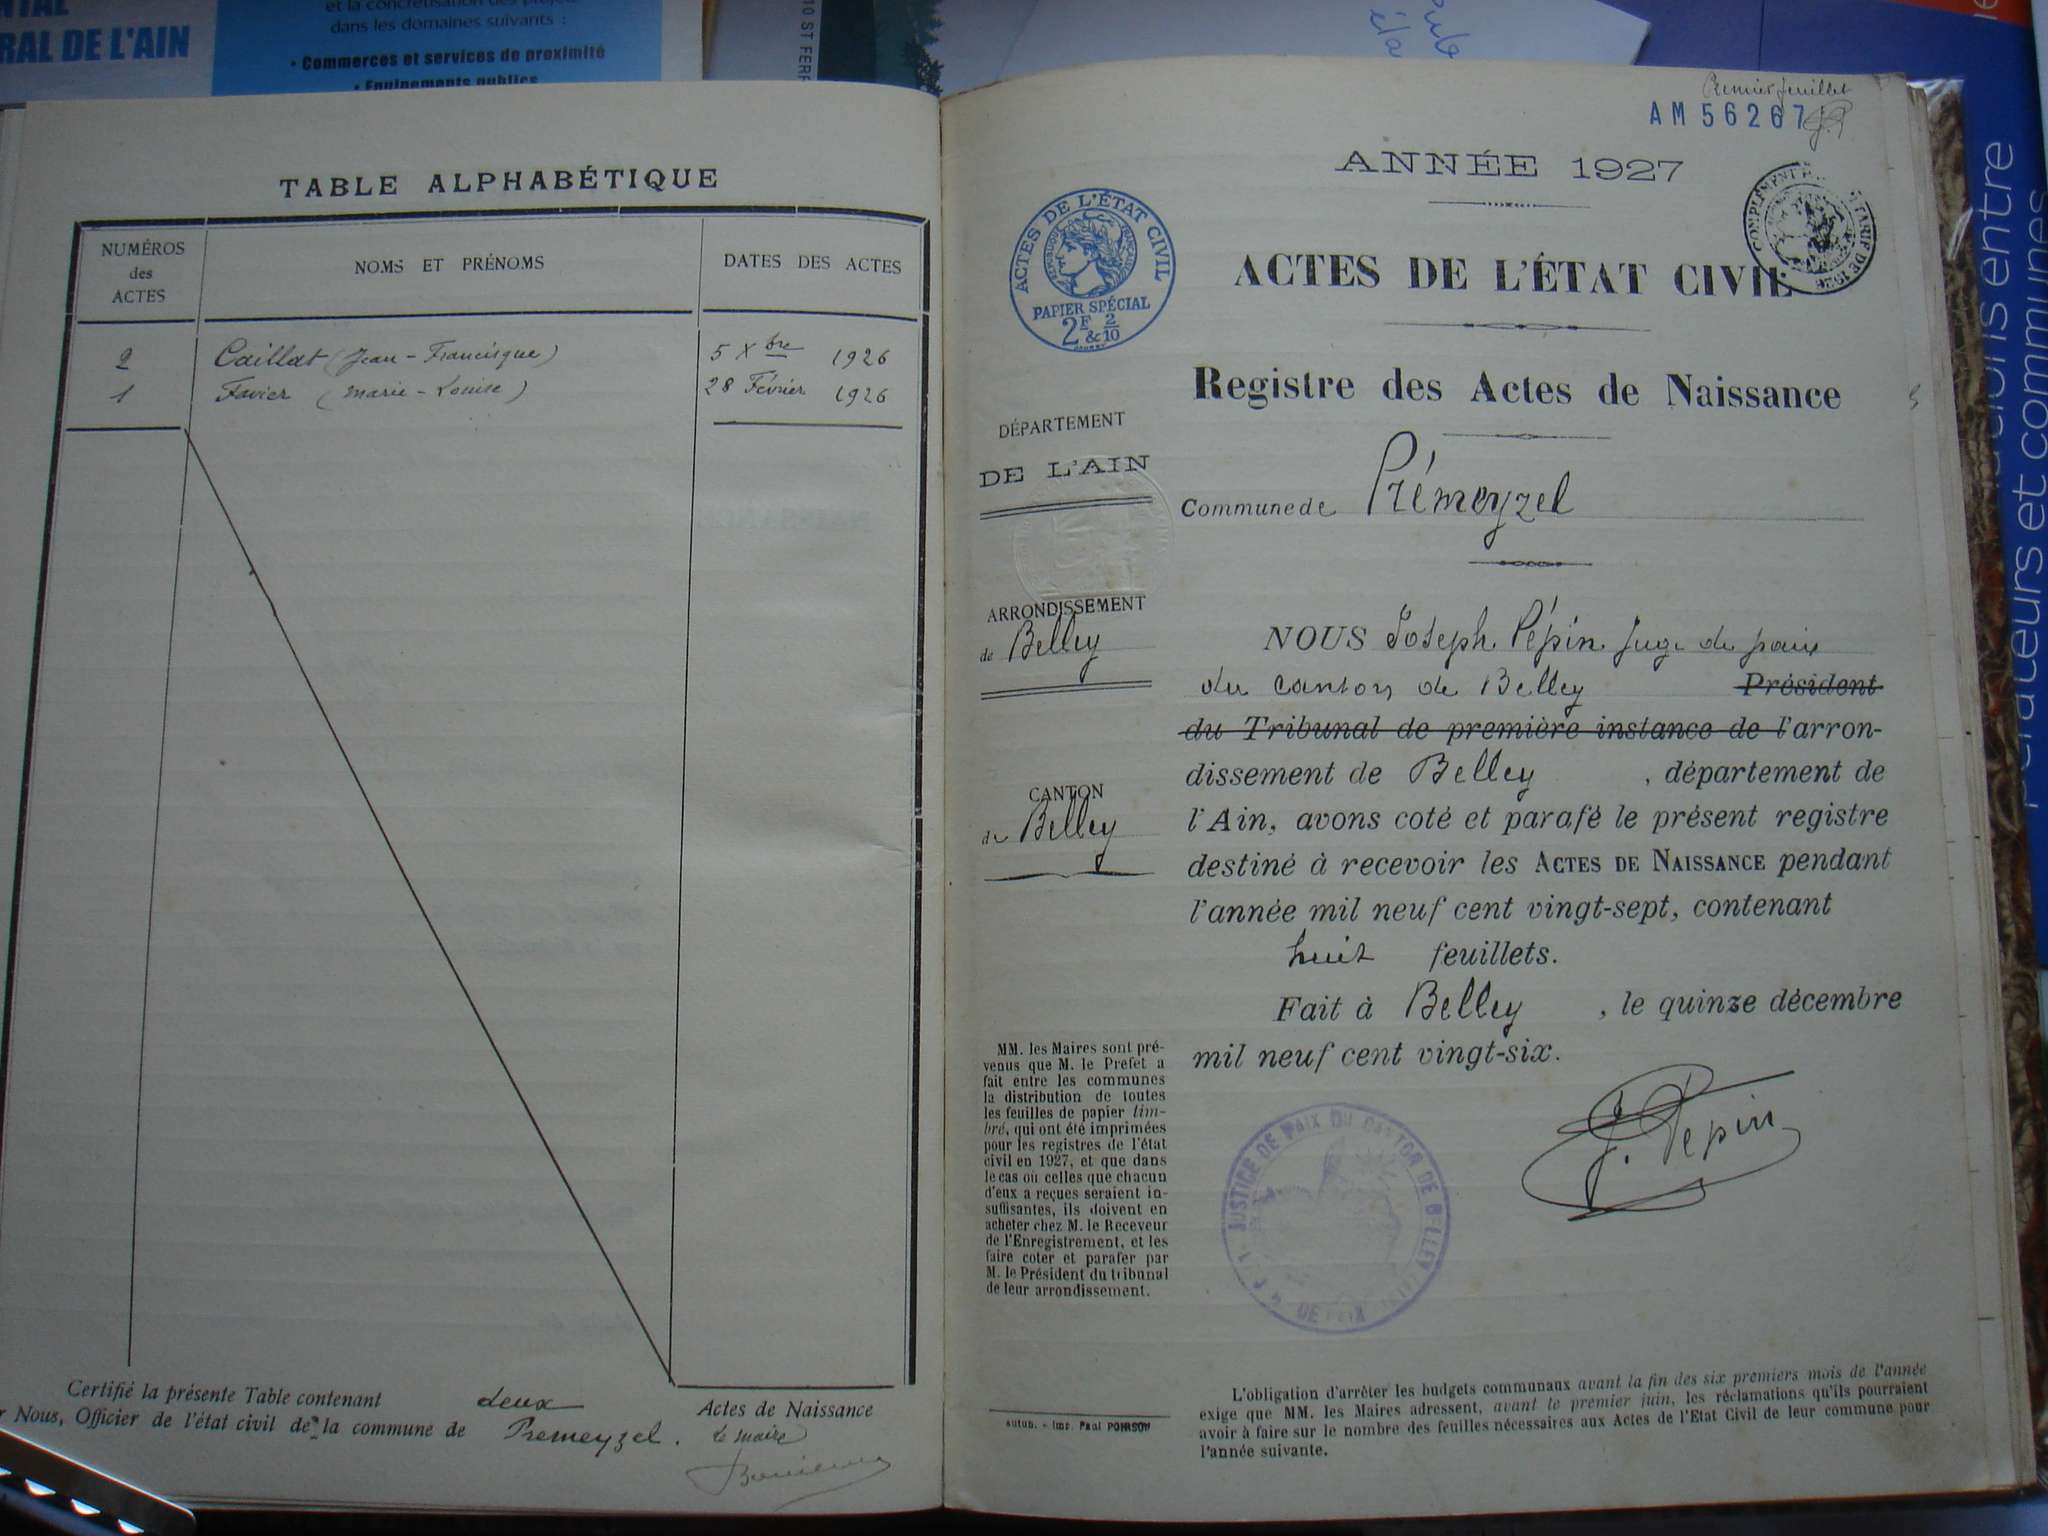 RAL DE L'AIN
et la concrétisation des projets
dans les domaines suivants :
• Commerces et services de proximité
• Equipements publics
10 ST FERR
TABLE ALPHABÉTIQUE
NUMÉROS
des
ACTES
NOMS ET PRÉNOMS
DATES DES ACTES
2 Caillat (Jean-Francisque) 5 Xbre 1926
1 Favier (Marie-Louise) 28 Février 1926
Certifié la présente Table contenant deux Actes de Naissance
r Nous, Officier de l'état civil de la commune de Premeyzel. Le maire
Premier feuillet
AM 56267
ANNÉE 1927
ACTES DE L'ÉTAT CIVIL
RÉPUBLIQUE FRANÇAISE
PAPIER SPÉCIAL
2F & 2/10
COMPLÉMENT TARIF DE 1926
ACTES DE L'ÉTAT CIVIL
Registre des Actes de Naissance
DÉPARTEMENT
DE L'AIN
Commune de Prémeyzel
ARRONDISSEMENT
de Belley
CANTON
de Belley
NOUS Joseph Pépin Juge de paix
du canton de Belley Président
du Tribunal de première instance de l'arron-
dissement de Belley , département de
l'Ain, avons coté et parafé le présent registre
destiné à recevoir les ACTES DE NAISSANCE pendant
l'année mil neuf cent vingt-sept, contenant
huit feuillets.
Fait à Belley , le quinze décembre
mil neuf cent vingt-six.
J. Pépin
JUSTICE DE PAIX DU CANTON DE BELLEY
MM. les Maires sont pré-
venus que M. le Prefet a
fait entre les communes
la distribution de toutes
les feuilles de papier tim-
bré, qui ont été imprimées
pour les registres de l'état
civil en 1927, et que dans
le cas où celles que chacun
d'eux a reçues seraient in-
suffisantes, ils doivent en
acheter chez M. le Receveur
de l'Enregistrement, et les
faire coter et parafer par
M. le Président du tribunal
de leur arrondissement.
Autun. - Imp. Paul POIRSON
L'obligation d'arrêter les budgets communaux avant la fin des six premiers mois de l'année
exige que MM. les Maires adressent, avant le premier juin, les réclamations qu'ils pourraient
avoir à faire sur le nombre des feuilles nécessaires aux Actes de l'Etat Civil de leur commune pour
l'année suivante.
entre
et communes